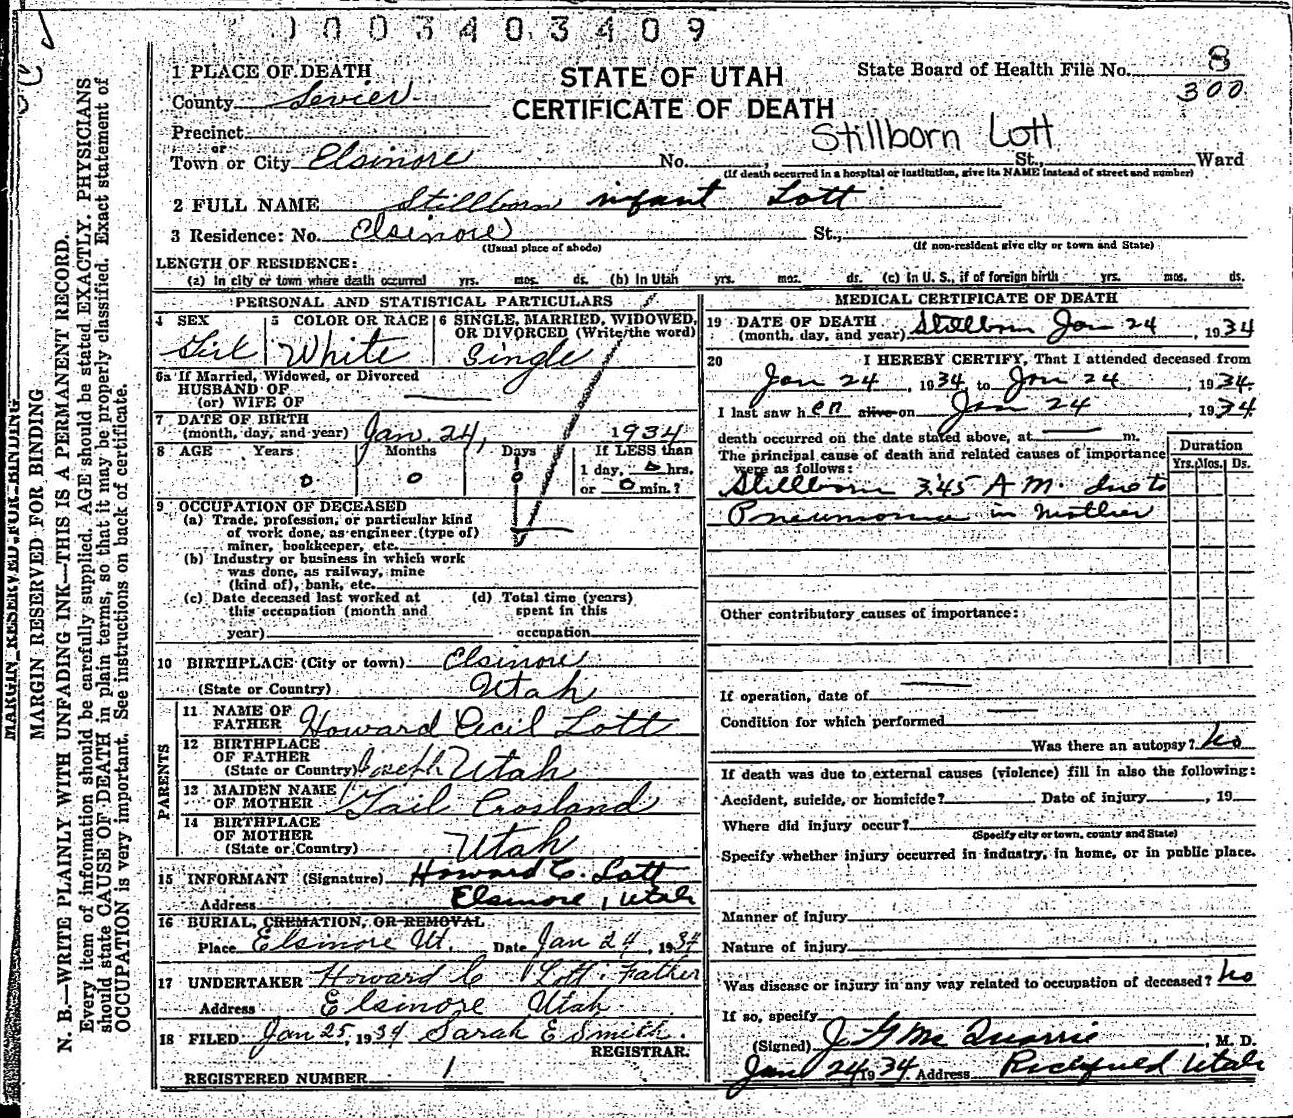 1003403409
1 PLACE OF DEATH
STATE OF UTAH
State Board of Health File No. 8
County Sevier
CERTIFICATE OF DEATH
300
Precinct
or
Stillborn Lott
Town or City Elsinore No. , St., Ward
(If death occurred in a hospital or institution, give its NAME instead of street and number)
2 FULL NAME Stillborn infant Lott
3 Residence: No. Elsinore St.,
(Usual place of abode) (If non-resident give city or town and State)
LENGTH OF RESIDENCE:
(a) In city or town where death occurred yrs. mos. ds. (b) In Utah yrs. mos. ds. (c) In U. S., if of foreign birth yrs. mos. ds.
PERSONAL AND STATISTICAL PARTICULARS
4 SEX 5 COLOR OR RACE 6 SINGLE, MARRIED, WIDOWED,
OR DIVORCED (Write the word)
Girl White Single
6a If Married, Widowed, or Divorced
HUSBAND OF
(or) WIFE OF
7 DATE OF BIRTH
(month, day, and year) Jan. 24, 1934
8 AGE Years Months Days If LESS than
0 0 0 1 day, 0 hrs.
or 0 min.?
9 OCCUPATION OF DECEASED
(a) Trade, profession, or particular kind
of work done, as engineer (type of)
miner, bookkeeper, etc.
(b) Industry or business in which work
was done, as railway, mine
(kind of), bank, etc.
(c) Date deceased last worked at (d) Total time (years)
this occupation (month and spent in this
year) occupation
10 BIRTHPLACE (City or town) Elsinore
(State or Country) Utah
PARENTS
11 NAME OF
FATHER Howard Cecil Lott
12 BIRTHPLACE
OF FATHER
(State or Country) Joseph Utah
13 MAIDEN NAME
OF MOTHER Gail Crosland
14 BIRTHPLACE
OF MOTHER
(State or Country) Utah
15 INFORMANT (Signature) Howard C. Lott
Address Elsinore, Utah
16 BURIAL, CREMATION, OR REMOVAL
Place Elsinore Ut. Date Jan 24, 1934
17 UNDERTAKER Howard C Lott. Father
Address Elsinore Utah
18 FILED Jan 25, 1934 Sarah E Smith.
REGISTRAR.
REGISTERED NUMBER 1
MEDICAL CERTIFICATE OF DEATH
19 DATE OF DEATH
(month, day, and year) Stillborn Jan 24, 1934
20 I HEREBY CERTIFY, That I attended deceased from
Jan 24, 1934 to Jan 24, 1934.
I last saw her alive on Jan 24, 1934
death occurred on the date stated above, at m.
The principal cause of death and related causes of importance
were as follows:
Duration
Yrs. Mos. Ds.
Stillborn 3.45 A M. due to
Pneumonia in mother
Other contributory causes of importance:
If operation, date of
Condition for which performed
Was there an autopsy? No
If death was due to external causes (violence) fill in also the following:
Accident, suicide, or homicide? Date of injury , 19
Where did injury occur?
(Specify city or town, county and State)
Specify whether injury occurred in industry, in home, or in public place.
Manner of injury
Nature of injury
Was disease or injury in any way related to occupation of deceased? No
If so, specify
(Signed) J G McQuarrie, M. D.
Jan 24 1934. Address Richfield Utah
MARGIN RESERVED FOR BINDING
MARGIN RESERVED FOR BINDING
N. B.—WRITE PLAINLY WITH UNFADING INK—THIS IS A PERMANENT RECORD.
Every item of information should be carefully supplied. AGE should be stated EXACTLY. PHYSICIANS
should state CAUSE OF DEATH in plain terms, so that it may be properly classified. Exact statement of
OCCUPATION is very important. See instructions on back of certificate.